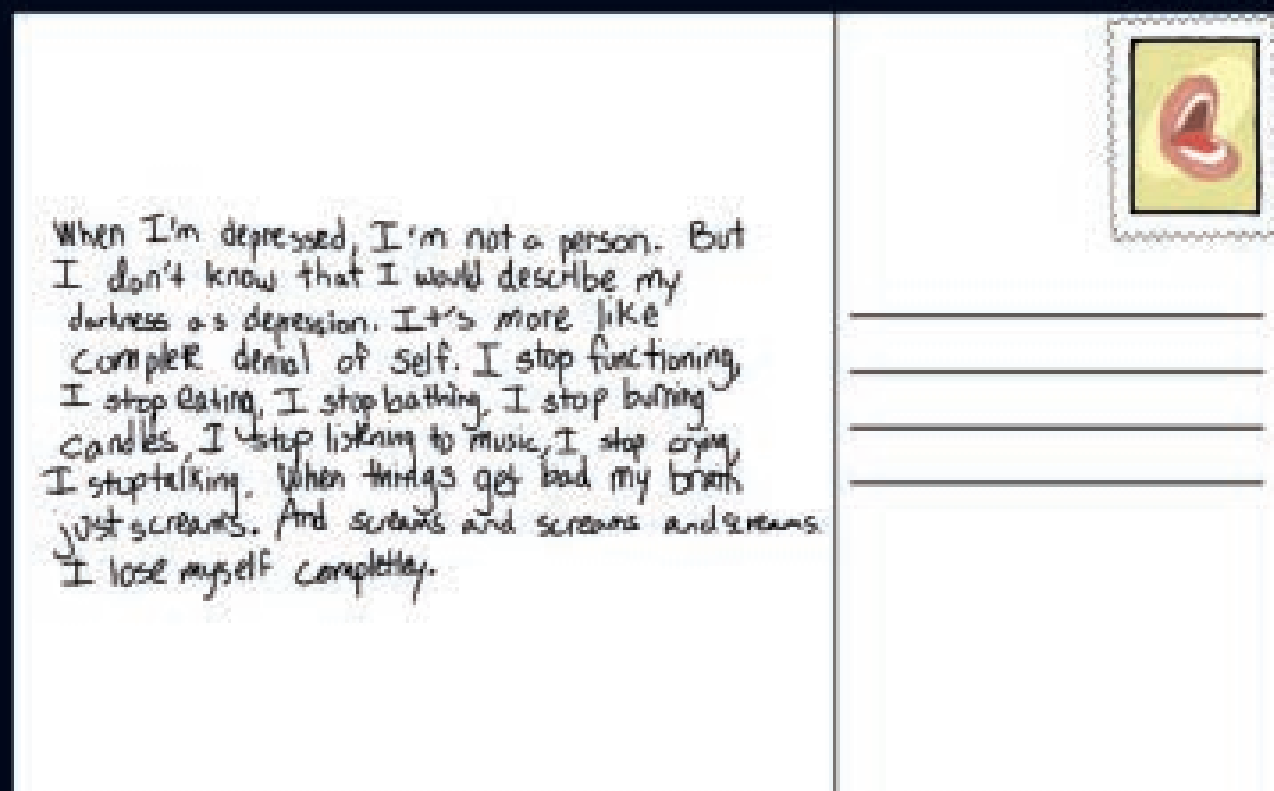 When I'm depressed, I'm not a person. But
I don't know that I would describe my
darkness as depression. It's more like
complete denial of self. I stop functioning,
I stop eating, I stop bathing, I stop burning
candles, I stop listening to music, I stop crying,
I stop talking. When things get bad my brain
just screams. And screams and screams and screams.
I lose myself completley.